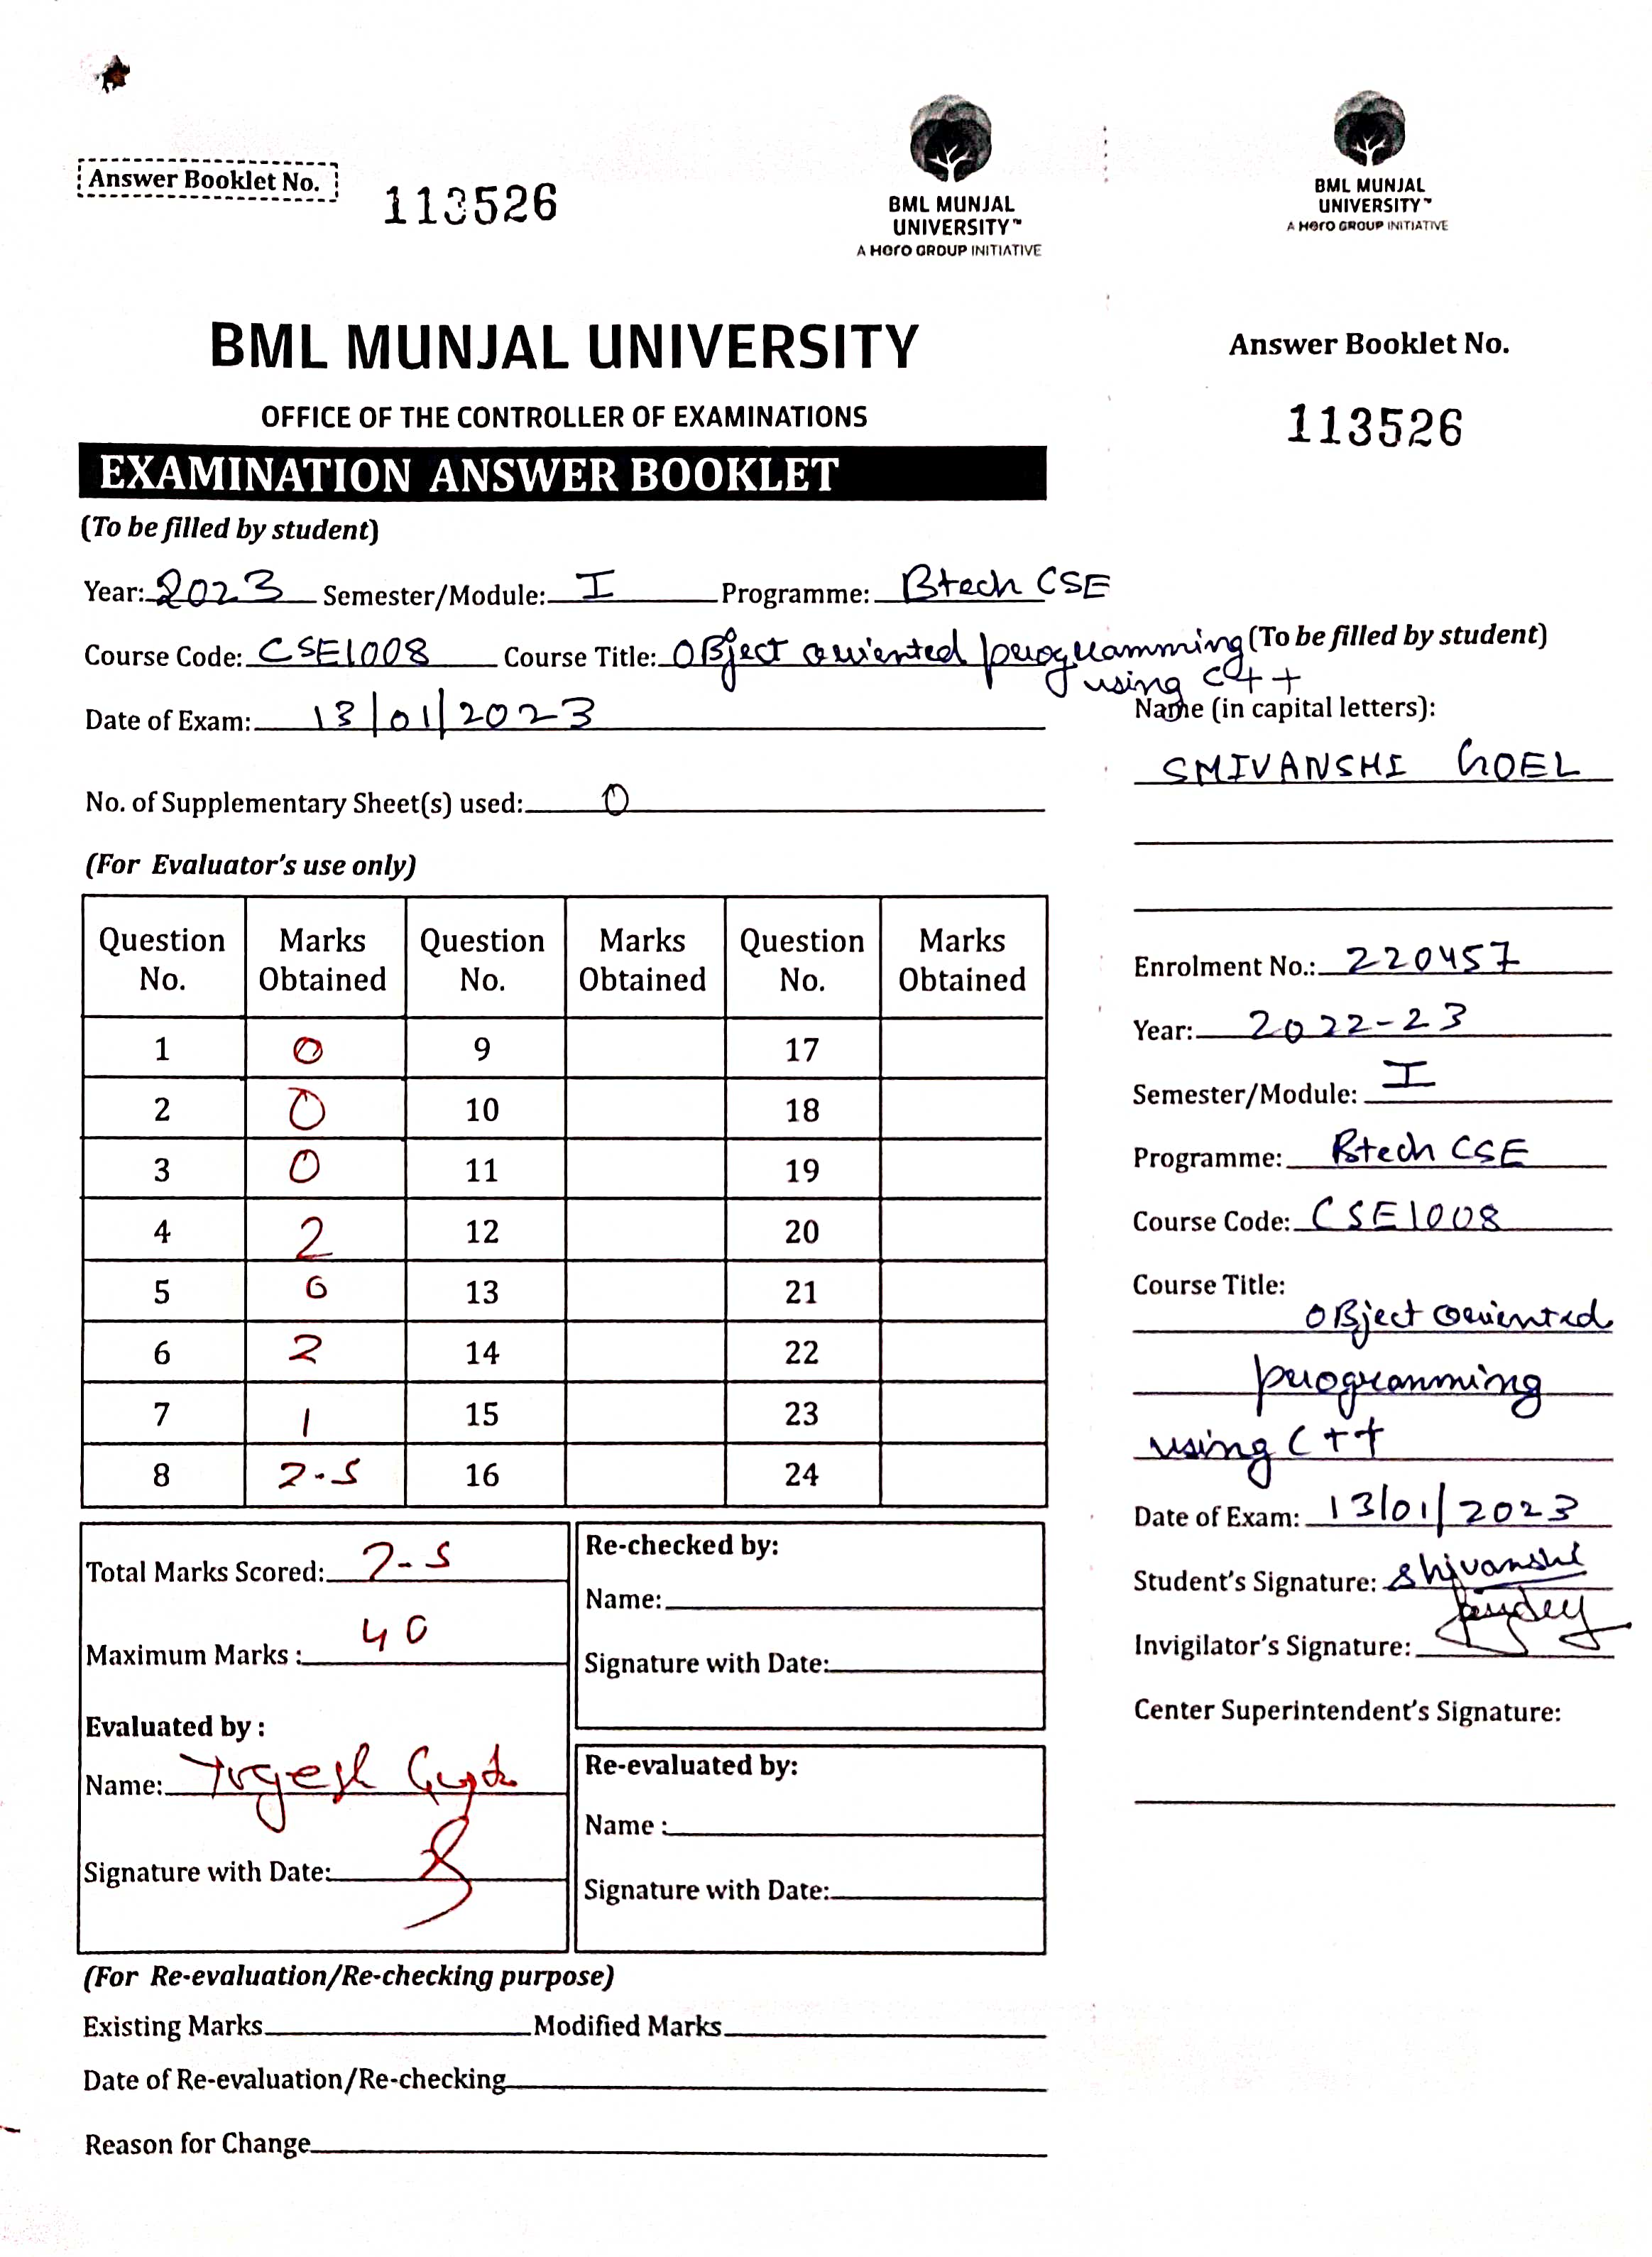 Answer Booklet No.
113526
BML MUNJAL
UNIVERSITY™
A Hero GROUP INITIATIVE
BML MUNJAL
UNIVERSITY™
A Hero GROUP INITIATIVE
BML MUNJAL UNIVERSITY
OFFICE OF THE CONTROLLER OF EXAMINATIONS
EXAMINATION ANSWER BOOKLET
(To be filled by student)
Year: 2023 Semester/Module: I Programme: Btech CSE
Course Code: CSE1008 Course Title: OBject oriented programming
using C++
Date of Exam: 13/01/2023
No. of Supplementary Sheet(s) used: 0
(For Evaluator's use only)
Question No. Marks Obtained Question No. Marks Obtained Question No. Marks Obtained
1 0 9 17
2 0 10 18
3 0 11 19
4 2 12 20
5 0 13 21
6 2 14 22
7 1 15 23
8 2.5 16 24
Total Marks Scored: 7.5
Maximum Marks : 40
Evaluated by :
Name: Yogesh Gupta
Signature with Date:
Re-checked by:
Name:
Signature with Date:
Re-evaluated by:
Name :
Signature with Date:
(For Re-evaluation/Re-checking purpose)
Existing Marks Modified Marks
Date of Re-evaluation/Re-checking
Reason for Change
Answer Booklet No.
113526
(To be filled by student)
Name (in capital letters):
SHIVANSHI GOEL
Enrolment No.: 220457
Year: 2022-23
Semester/Module: I
Programme: Btech CSE
Course Code: CSE1008
Course Title:
OBject oriented
programming
using C++
Date of Exam: 13/01/2023
Student's Signature: Shivanshi
Invigilator's Signature:
Center Superintendent's Signature: